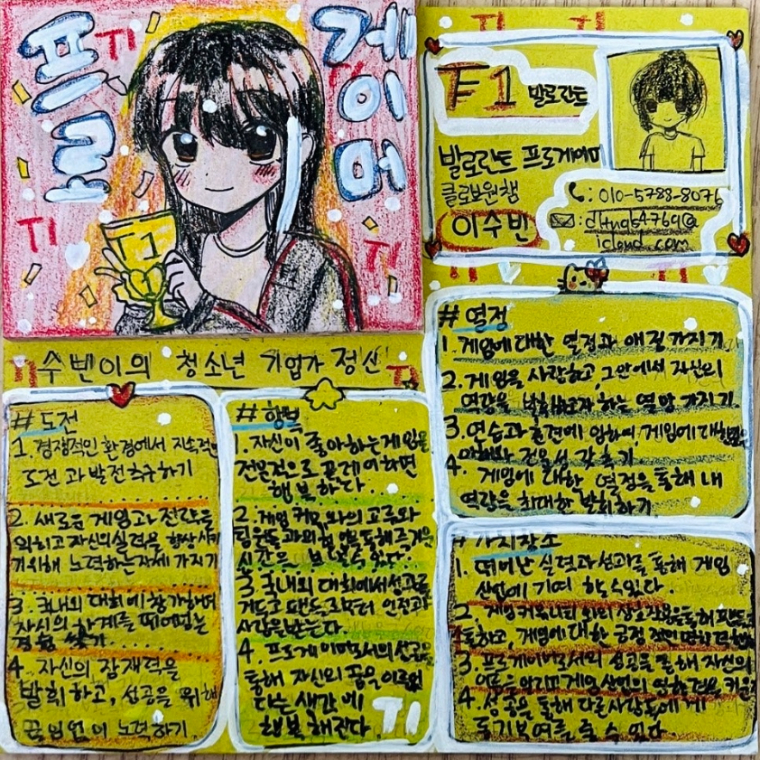 프로
게이머
T1
T1
T1
T1
T1
T1
T1 발로란트
발로란트 프로게이머
클로보원챔
이수빈
: 010-5788-8076
icloud.com
수빈이의 청소년 기업가 정신
#도전
1. 경쟁적인 환경에서 지속적인
도전과 발전추구하기
2. 새로운 게임과 전략을
익히고 자신의 실력을 향상시키
기위해 노력하는자세 가지기
3. 국내외 대회에 참가하며
자신의 한계를 뛰어넘는
경험 쌓기
4. 자신의 잠재력을
발휘하고, 성공을 위해
끊임없이 노력하기.
#행복
1. 자신이 좋아하는 게임을
전문적으로 플레이하면
행복하다
2. 게임 커뮤니티와의 교류와
팀원들과의 협업을 통해 즐거운
시간을 보낼수있다.
3. 국내외 대회에서 성과를
거두고 팬들로부터 인정과
사랑을받는다
4. 프로게이머로서의 성공을
통해 자신의 꿈을 이루었
다는 생각에
행복해진다.
T1
#열정
1. 게임에대한 열정과 애정 가지기
2. 게임을 사랑하고, 그안에서 자신의
역량을 발휘하고자 하는 열망 가지기.
3. 연습과 훈련에 임하며 게임에대한
이해와 전술성 갖추기
4. 게임에 대한 열정을 통해 내
역량을 최대한 발휘하기.
#가치창소
1. 뛰어난 실력과 성과를 통해 게임
산업에 기여 할수있다
2. 게임커뮤니티와의 상호작용을통해 팬들과
소통하고, 게임에 대한 긍정적인 영향
3. 프로게이머로서의 성공을 통해 자신의
이름을 알리고 게임산업의 영향력을 키운다
4. 성공을 통해 다른사람들에게
동기부여를 줄 수 있다.